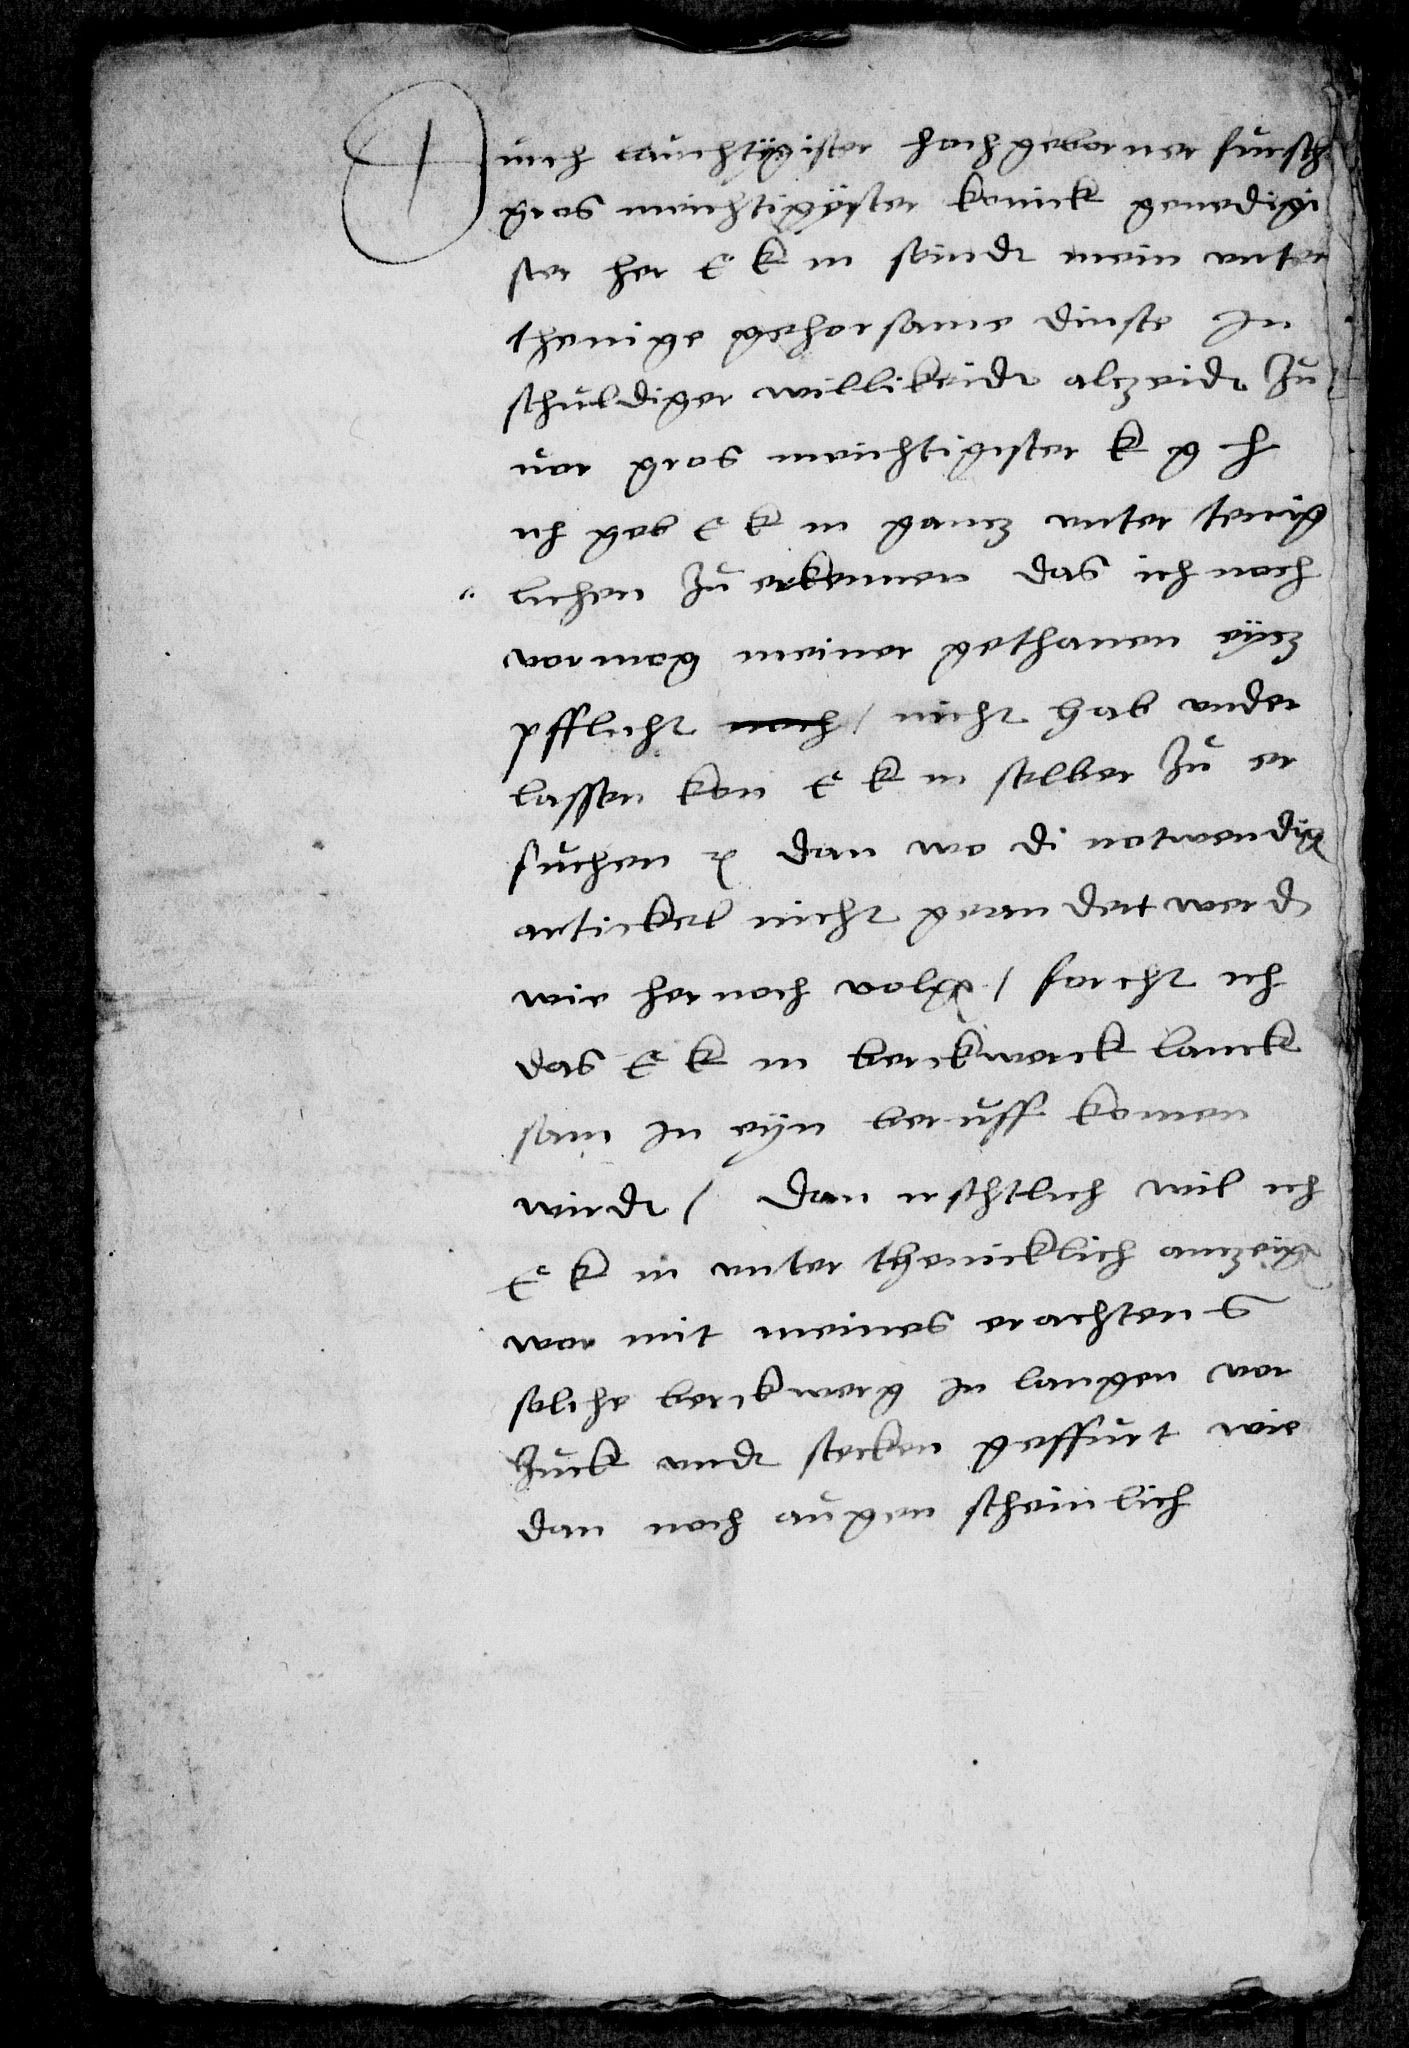 Durch lauchtÿgister hoch geborner fursth
gros meichtigÿster konick genedigi
ster her E k m seindt mein unter
thenige gehorsame dinste In
schuldiger willikeidt alczeidt Zu
uor gros meichtigister k g h
ich geb E k m gancz unter tenig
lichen Zu erkennen das ich noch
vormog meiner gethanen eÿcz
pfflicht noch / nicht hab under
lassen kon E k m selber Zu er
suchen dan wo di notwendig
artickel nicht geandert werd
wie her noch volg / forcht ich
das E k m berckwerck lanck
sam In eÿn beruff komen
wirdt / Dan erschtlich wil ich
E k m unter thenicklich anczeig
wor mit meines erachtens
solche berckwerg In langen vor
Zuck undt stecken geffurt wie
dan noch augen scheinlich